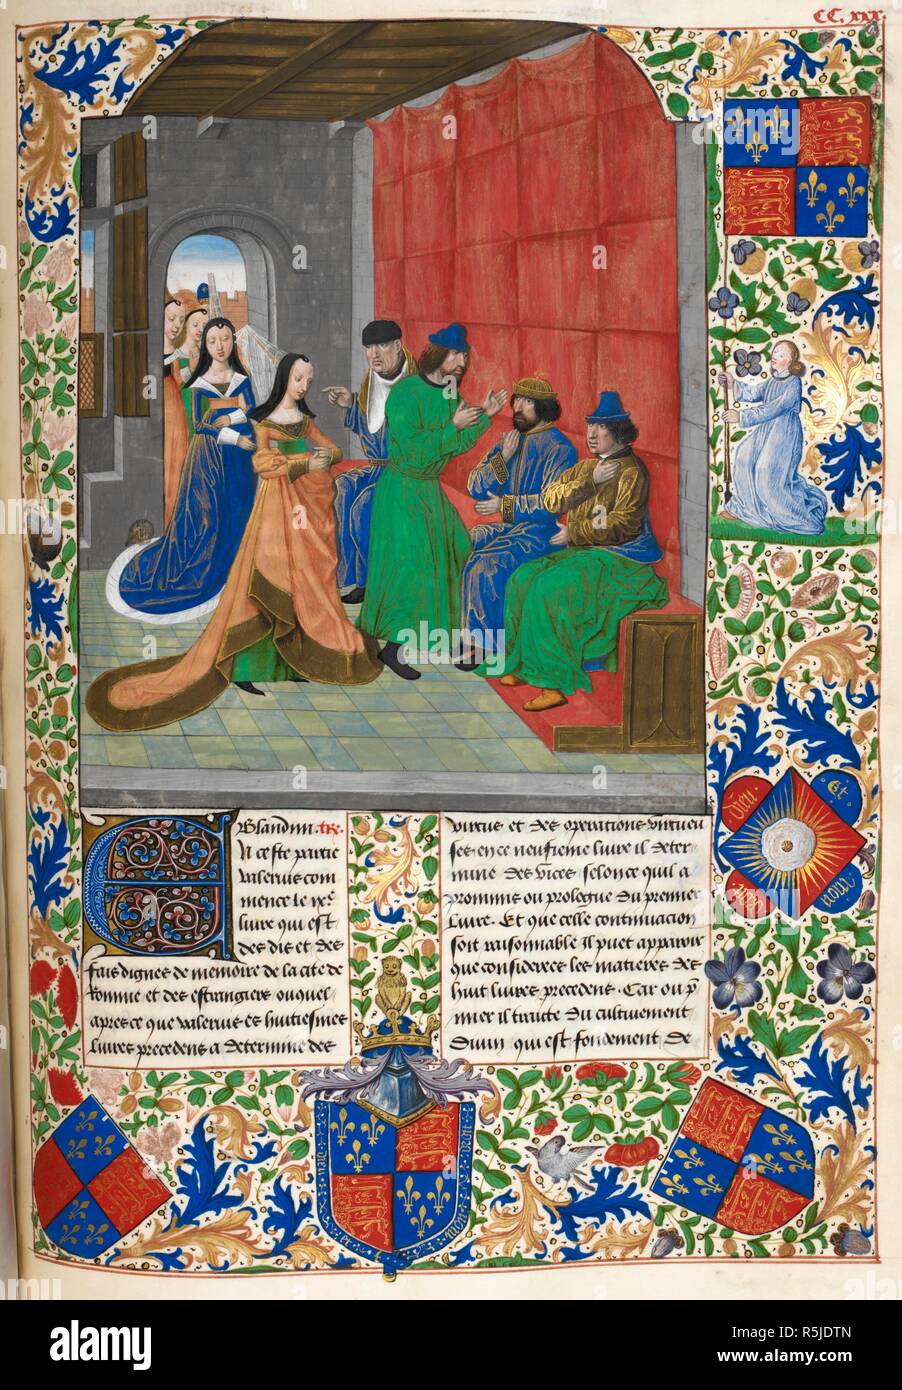 CC. xxx.
Blandim. tr.
N ceste partie
valerius com
mence le ixe.
liure qui est
des dis et des
fais dignes de memoire de la cite de
Romme et des estrangiers ouquel
apres ce que valerius es huitiesmes
liures precedens a determine des
virtus et des operations virtueu
ses en ce neufieme liure il deter
mine des vices selonce quil a
prommis ou prologue du premier
liure. Et que celle continuacion
soit raisonnable il puet apparoir
que considerees les matieres des
huit liures precedens. Car ou pre
mier il traicte du cultiuement
diuin qui est fondement de
Dieu
Et
mon
Dieu
et
mon
Droit
alamy
Image ID: R5JDTN
www.alamy.com